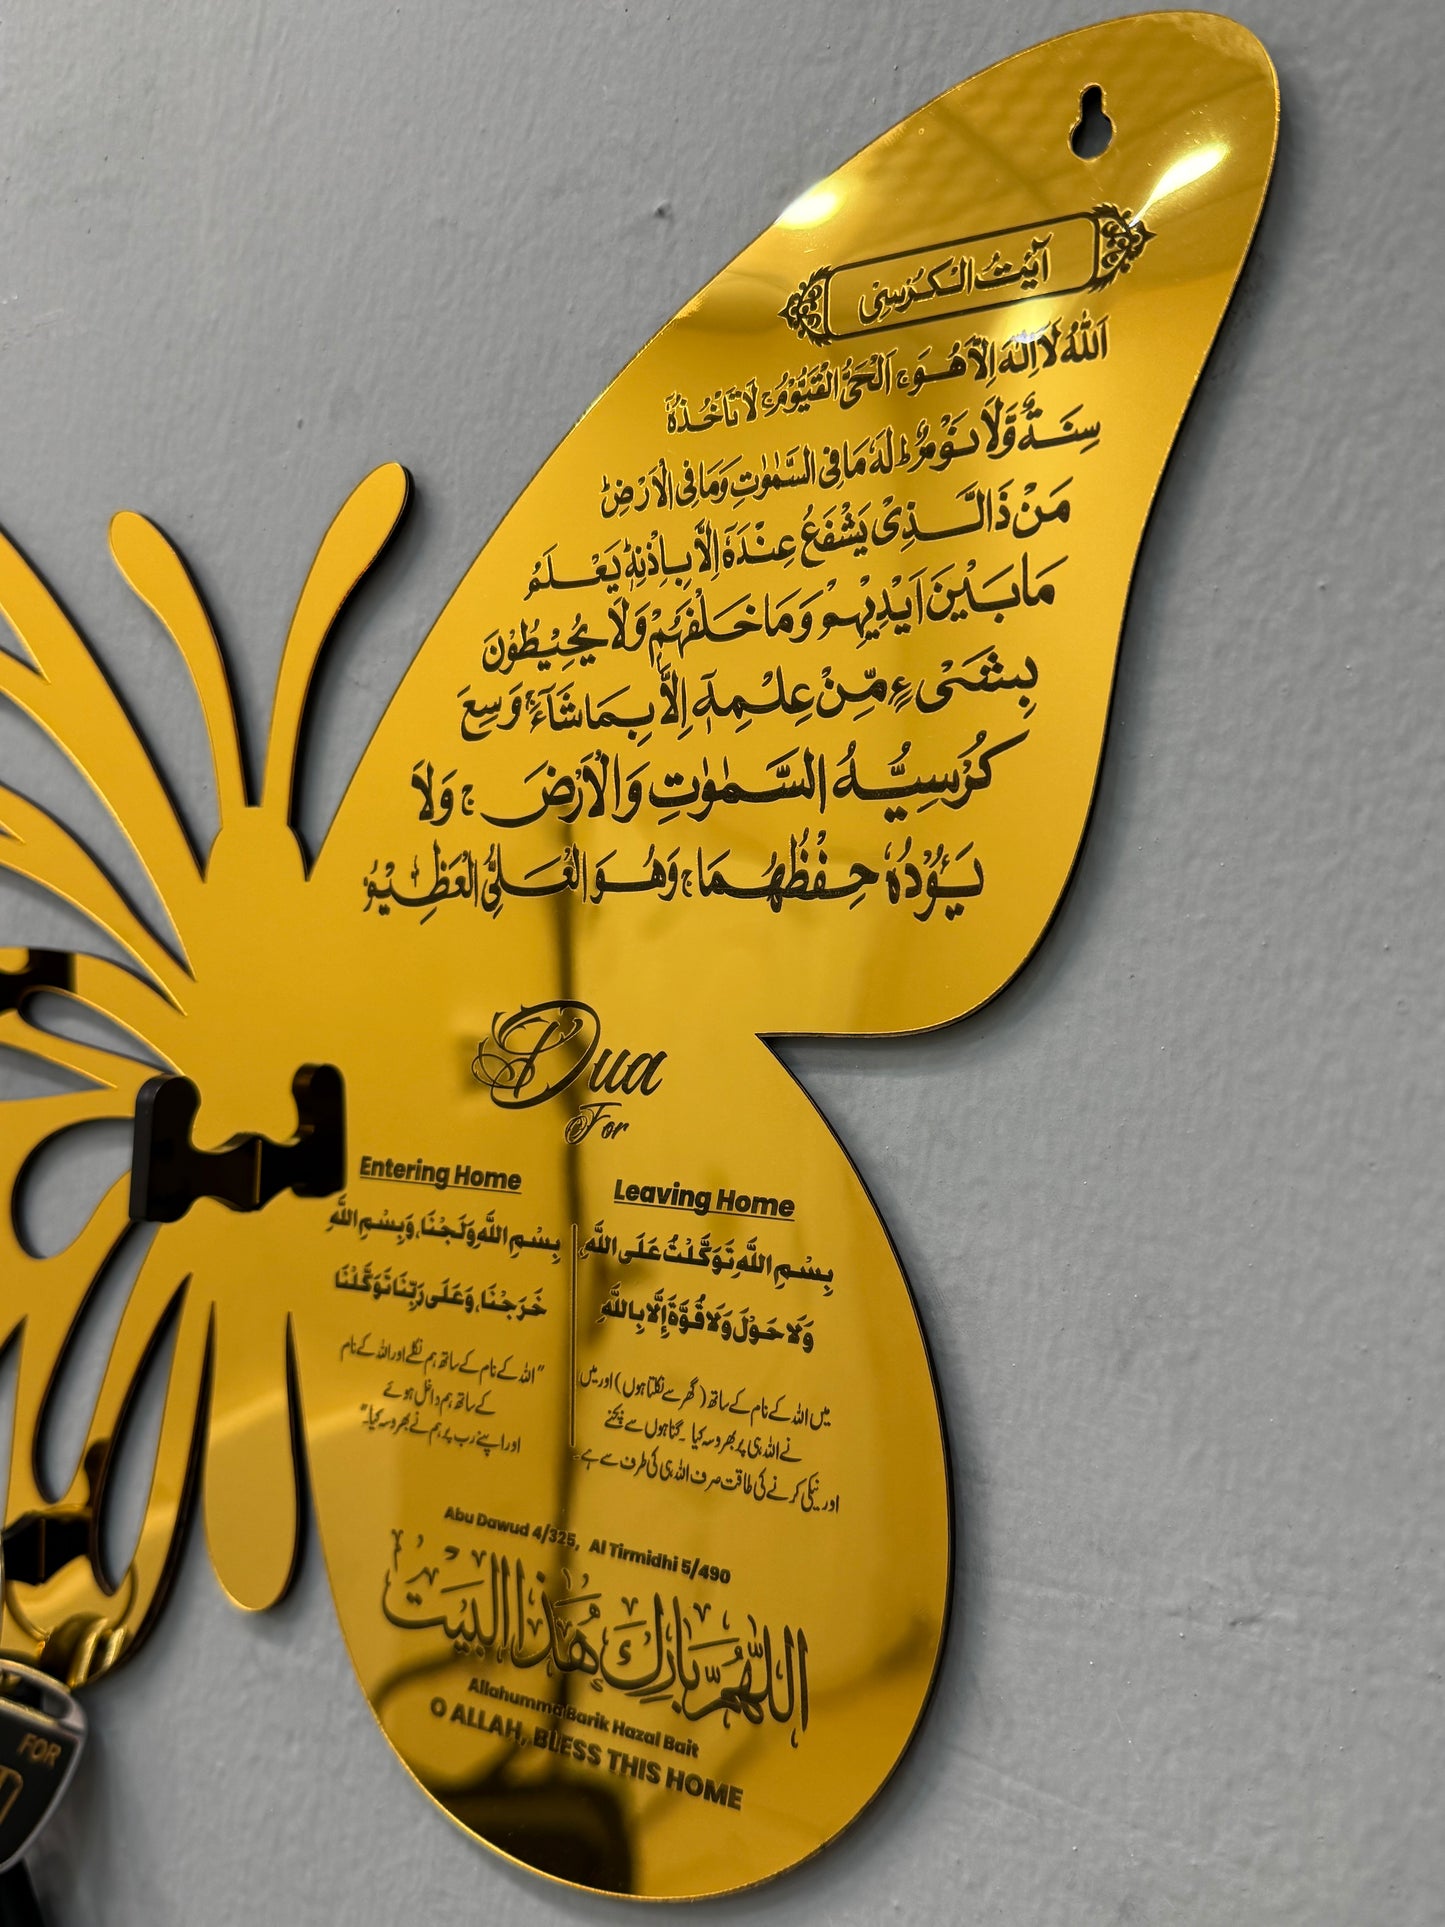 آيَتُ الْكُرْسِى
اَللّٰهُ لَاۤاِلٰهَ اِلَّا هُوَ ۚ اَلْحَىُّ الْقَيُّوْمُ ۚ لَا تَاْخُذُهٗ
سِنَةٌ وَّلَا نَوْمٌ ؕ لَهٗ مَا فِى السَّمٰوٰتِ وَمَا فِى الْاَرْضِ ؕ
مَنْ ذَا الَّذِىْ يَشْفَعُ عِنْدَهٗۤ اِلَّا بِاِذْنِهٖ ؕ يَعْلَمُ
مَا بَيْنَ اَيْدِيْهِمْ وَمَا خَلْفَهُمْ وَلَا يُحِيْطُوْنَ
بِشَىْءٍ مِّنْ عِلْمِهٖۤ اِلَّا بِمَا شَآءَ ۚ وَسِعَ
كُرْسِيُّهُ السَّمٰوٰتِ وَالْاَرْضَ ۚ وَلَا
يَـُٔوْدُهٗ حِفْظُهُمَا ۚ وَهُوَ الْعَلِىُّ الْعَظِيْمُ
Dua
For
Entering Home
بِسْمِ اللَّهِ وَلَجْنَا، وَبِسْمِ اللَّهِ
خَرَجْنَا، وَعَلَى رَبِّنَا تَوَكَّلْنَا
"اللہ کے نام کے ساتھ ہم نکلے اور اللہ کے نام
کے ساتھ ہم داخل ہوئے
اور اپنے رب پر ہم نے بھروسہ کیا۔"
Leaving Home
بِسْمِ اللَّهِ تَوَكَّلْتُ عَلَى اللَّهِ،
وَلَا حَوْلَ وَلَا قُوَّةَ إِلَّا بِاللَّهِ
میں اللہ کے نام کے ساتھ (گھر سے نکلتا ہوں) اور میں
نے اللہ ہی پر بھروسہ کیا۔ گناہوں سے بچنے
اور نیکی کرنے کی طاقت صرف اللہ ہی کی طرف سے ہے۔
Abu Dawud 4/325, Al Tirmidhi 5/490
اللَّهُمَّ بَارِكْ هٰذَا الْبَيْت
Allahumma Barik Hazal Bait
O ALLAH, BLESS THIS HOME
FOR